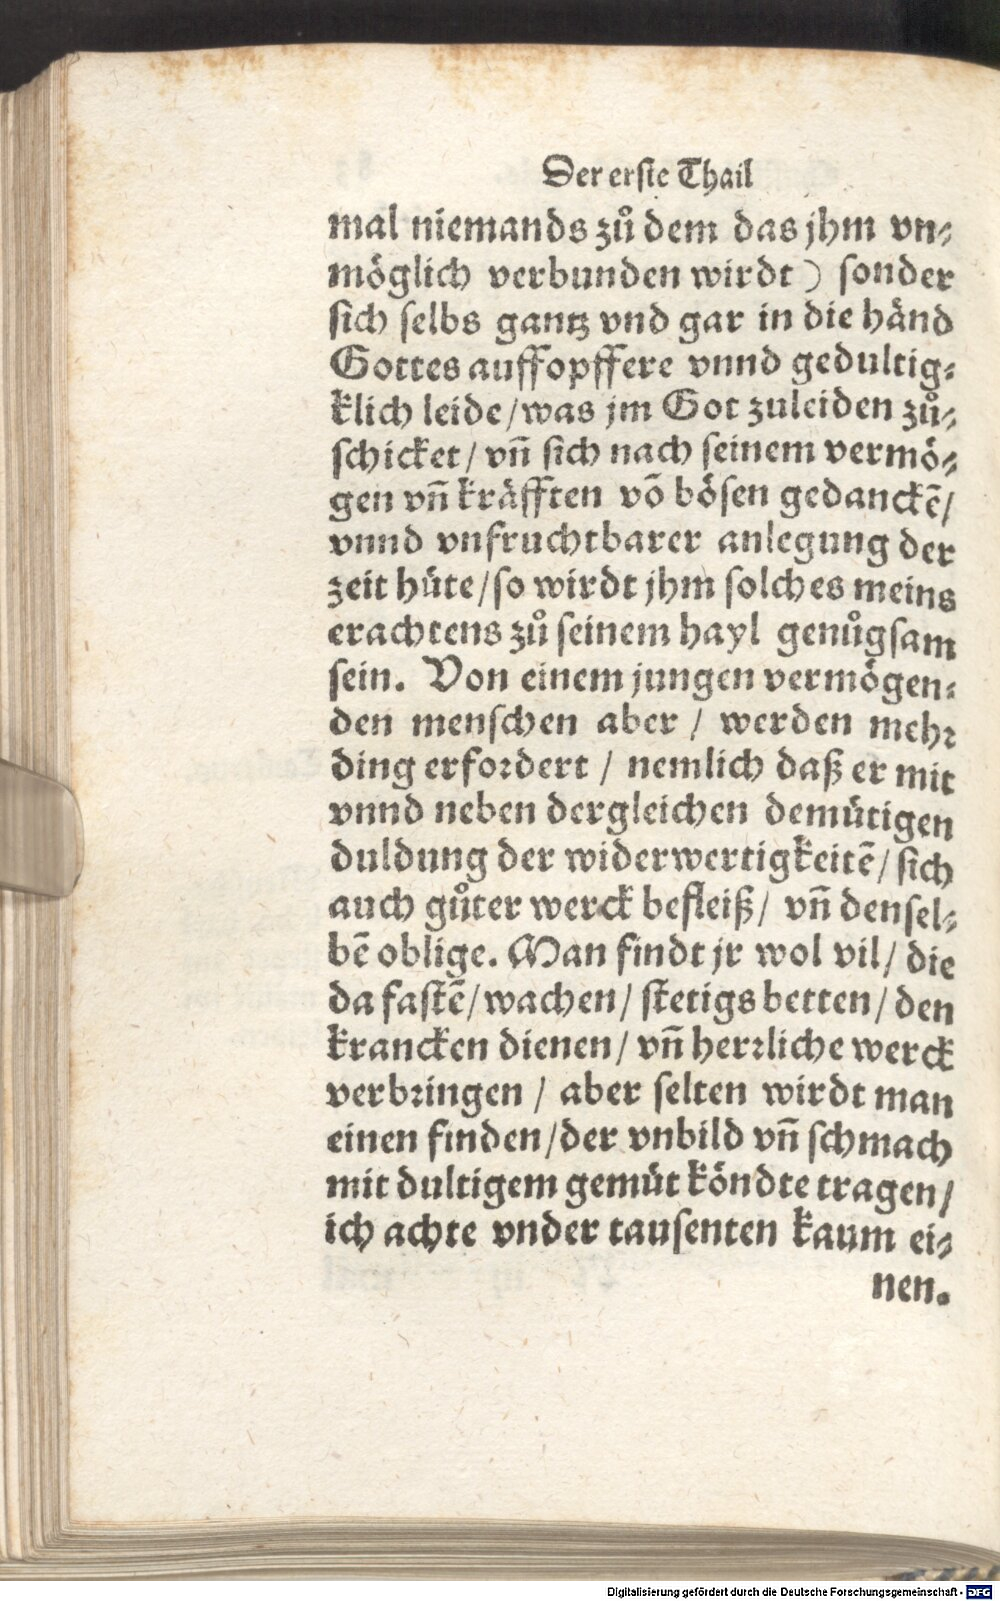 Der erste Thail
mal niemands zuͦ dem das jhm vn⸗
möglich verbunden wirdt) sonder
sich selbs gantz vnd gar in die händ
Gottes auffopffere vnnd gedultig⸗
klich leide/was jm Got zuleiden zuͦ⸗
schicket/ vn̄ sich nach seinem vermö⸗
gen vn̄ kräfften vō bösen gedanckē/
vnnd vnfruchtbarer anlegung der
zeit hüte/so wirdt jhm solches meins
erachtens zuͦ seinem hayl genuͦgsam
sein. Von einem jungen vermögen⸗
den menschen aber / werden mehr
ding erfordert / nemlich daß er mit
vnnd neben dergleichen demütigen
duldung der widerwertigkeitē/ sich
auch guͦter werck befleiß/ vn̄ densel⸗
bē oblige. Man findt jr wol vil/ die
da fastē/wachen/ stetigs betten/ den
krancken dienen/ vn̄ herrliche werck
verbringen / aber selten wirdt man
einen finden/der vnbild vn̄ schmach
mit dultigem gemüt köndte tragen/
ich achte vnder tausenten kaum ei⸗
nen.
Digitalisierung gefördert durch die Deutsche Forschungsgemeinschaft - DFG